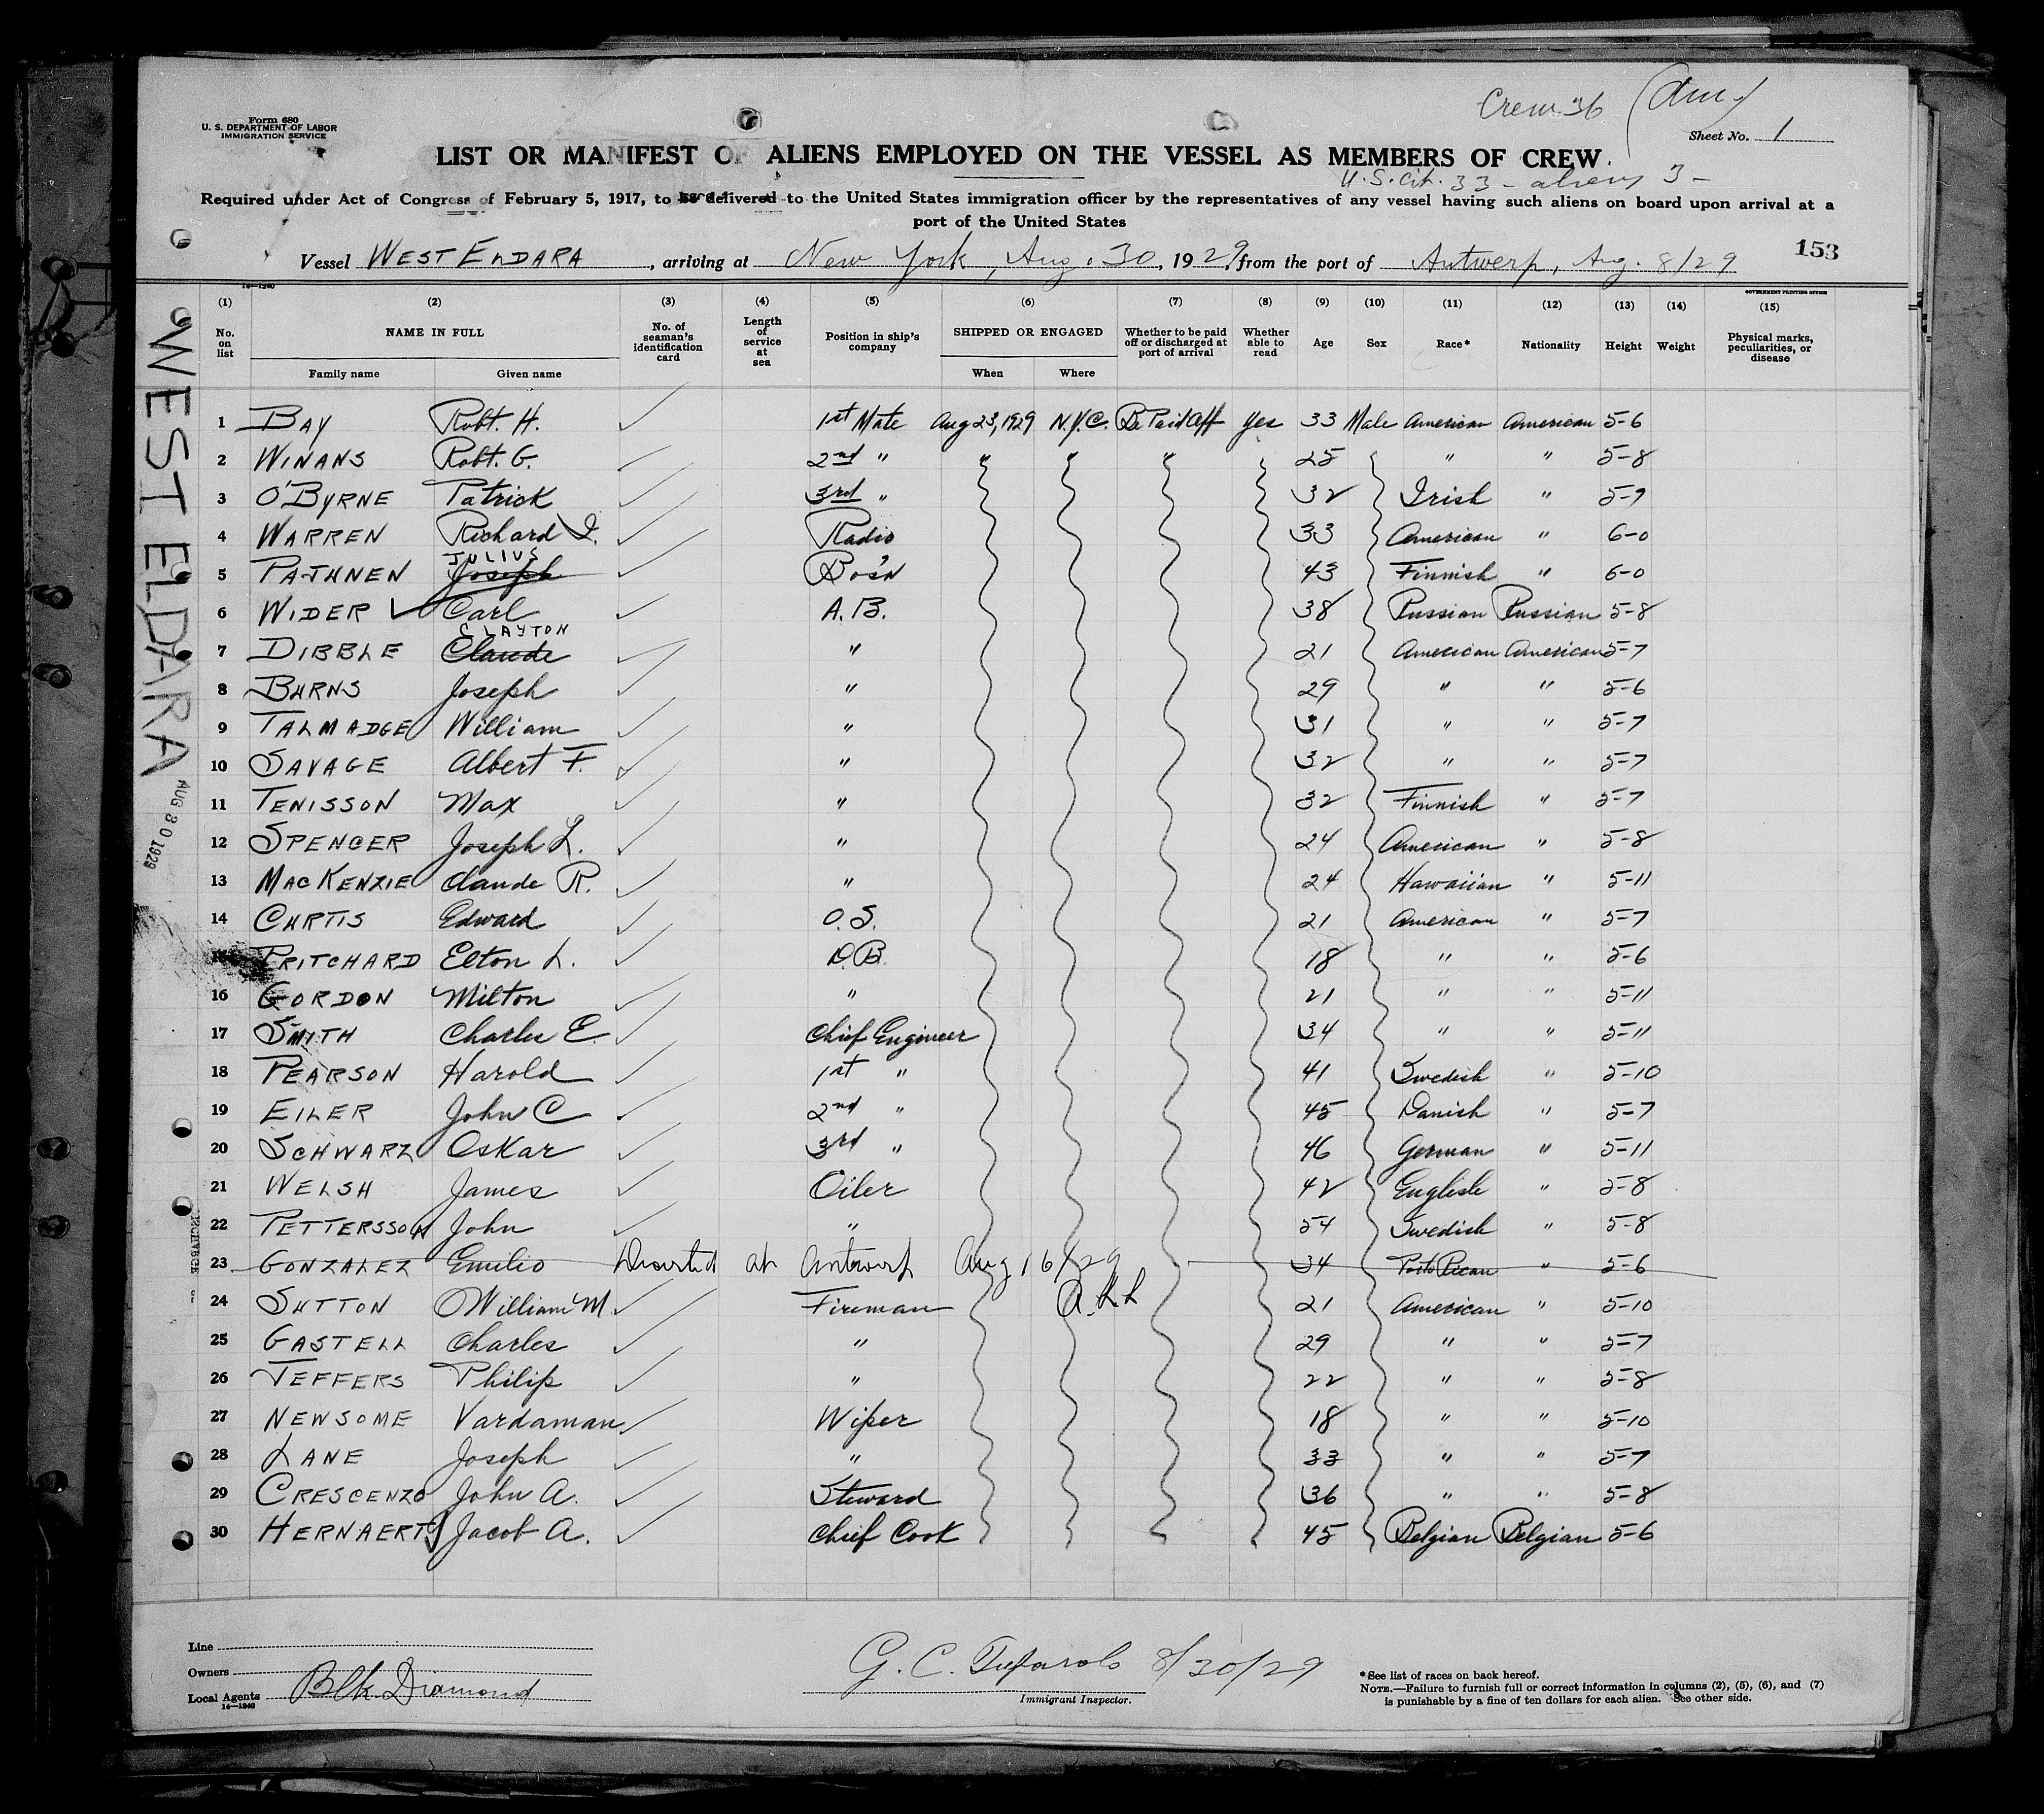 Form 680
U. S. DEPARTMENT OF LABOR
IMMIGRATION SERVICE
Crew 36 (Am)
Sheet No. 1
LIST OR MANIFEST OF ALIENS EMPLOYED ON THE VESSEL AS MEMBERS OF CREW
U.S. Cit. 33 - aliens 3 -
Required under Act of Congress of February 5, 1917, to be delivered to the United States immigration officer by the representatives of any vessel having such aliens on board upon arrival at a
port of the United States
153
Vessel WEST ELDARA, arriving at New York, Aug. 30, 1929, from the port of Antwerp, Aug. 8/29
14—1240
GOVERNMENT PRINTING OFFICE
(1) (2) (3) (4) (5) (6) (7) (8) (9) (10) (11) (12) (13) (14) (15)
No. on list NAME IN FULL Family name Given name No. of seaman's identification card Length of service at sea Position in ship's company SHIPPED OR ENGAGED When Where Whether to be paid off or discharged at port of arrival Whether able to read Age Sex Race* Nationality Height Weight Physical marks, peculiarities, or disease
1 BAY Robt. H. 1st Mate Aug 23, 1929 N.Y.C. Be Paid Off Yes 33 Male American American 5-6
2 WINANS Robt. G. 2nd " " " " 25 " " 5-8
3 O'BYRNE Patrick 3rd " 32 Irish " 5-9
4 WARREN Richard I. Radio 33 American " 6-0
5 PAJUNEN JULIUS Joseph Bos'n 43 Finnish " 6-0
6 WIDER Carl A.B. 38 Russian Russian 5-8
7 DIBBLE CLAYTON Claude " 21 American American 5-7
8 BURNS Joseph " 29 " " 5-6
9 TALMADGE William " 31 " " 5-7
10 SAVAGE Albert F. " 32 " " 5-7
11 TENISSON Max " 32 Finnish " 5-7
12 SPENCER Joseph L. " 24 American " 5-8
13 MACKENZIE Claude R. " 24 Hawaiian " 5-11
14 CURTIS Edward O.S. 21 American " 5-7
PRITCHARD Elton L. D.B. 18 " " 5-6
16 GORDON Milton " 21 " " 5-11
17 SMITH Charles E. Chief Engineer 34 " " 5-11
18 PEARSON Harold 1st " 41 Swedish " 5-10
19 EILER John C 2nd " 45 Danish " 5-7
20 SCHWARZ Oskar 3rd " 46 German " 5-11
21 WELSH James Oiler 42 English " 5-8
22 PETTERSSON John " 54 Swedish " 5-8
23 GONZALEZ Emilio Deserted at Antwerp Aug 16/29 34 Porto Rican " 5-6
24 SUTTON William M. Fireman 21 American " 5-10
25 GASTELL Charles " 29 " " 5-7
26 JEFFERS Philip " 22 " " 5-8
27 NEWSOME Vardaman Wiper 18 " " 5-10
28 LANE Joseph " 33 " " 5-7
29 CRESCENZO John A. Steward 36 " " 5-8
30 HERNAERTS Jacob A. Chief Cook 45 Belgian Belgian 5-6
WEST ELDARA
AUG 30 1929
Line
Owners
Local Agents Blk. Diamond
14—1240
G. C. 8/30/29
Immigrant Inspector.
*See list of races on back hereof.
NOTE.—Failure to furnish full or correct information in columns (2), (5), (6), and (7)
is punishable by a fine of ten dollars for each alien. See other side.